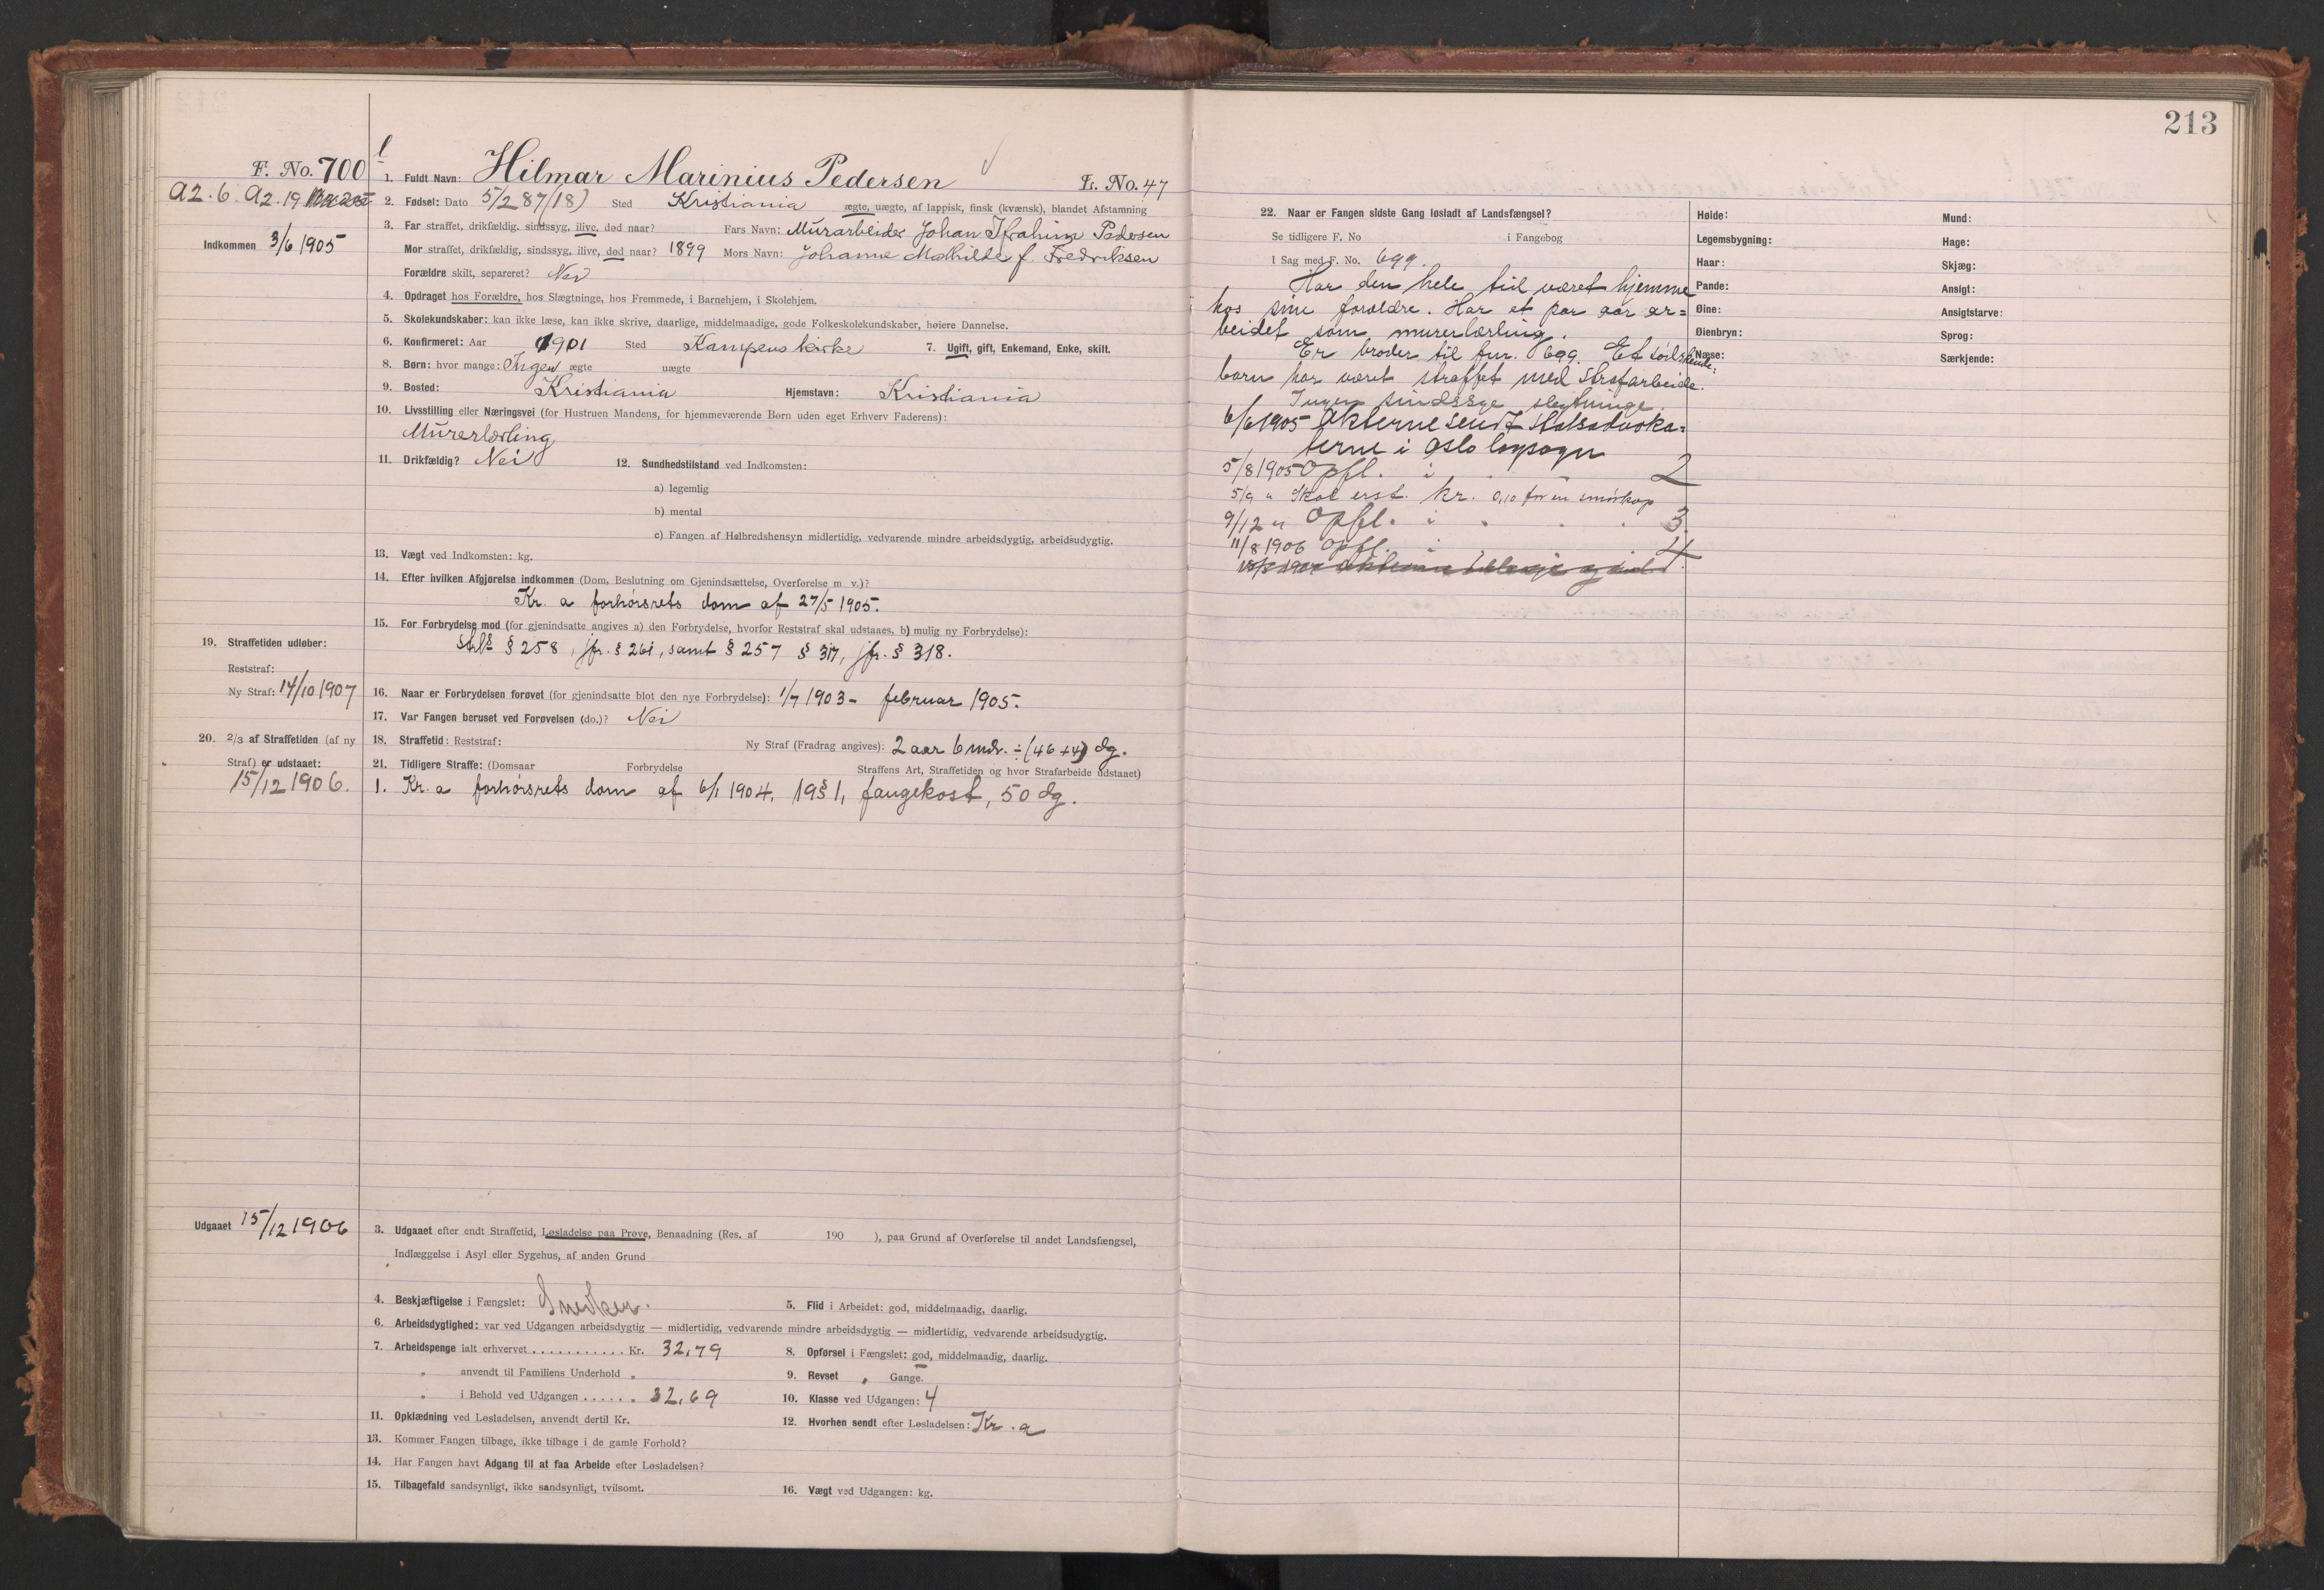 213
F. No. 700
1. Fuldt Navn: Hilmar Marinius Pedersen
L. No. 47
A2. 6. A2. 19
2. Fødsel: Dato 5/2 87 (18) Sted Kristiania ægte, uægte, af lappisk, finsk (kvænsk), blandet Afstamning
3. Far straffet, drikfældig, sindssyg, ilive, død naar? Fars Navn: Murarbeider Johan Pedersen
Indkommen 3/6 1905
Mor straffet, drikfældig, sindssyg, ilive, død naar? 1899 Mors Navn: Johanne Mathilde f. Fredriksen
Forældre skilt, separeret? Nei
4. Opdraget hos Forældre, hos Slægtninge, hos Fremmede, i Barnehjem, i Skolehjem.
5. Skolekundskaber: kan ikke læse, kan ikke skrive, daarlige, middelmaadige, gode Folkeskolekundskaber, høiere Dannelse.
6. Konfirmeret: Aar 1901 Sted Kampens kirke 7. Ugift, gift, Enkemand, Enke, skilt.
8. Børn: hvor mange: Ingen ægte uægte
9. Bosted: Kristiania Hjemstavn: Kristiania
10. Livsstilling eller Næringsvei (for Hustruen Mandens, for hjemmeværende Børn uden eget Erhverv Faderens):
Murerlærling
11. Drikfældig? Nei 12. Sundhedstilstand ved Indkomsten:
a) legemlig
b) mental
c) Fangen af Helbredshensyn midlertidig, vedvarende mindre arbeidsdygtig, arbeidsudygtig.
13. Vægt ved Indkomsten: kg.
14. Efter hvilken Afgjørelse indkommen (Dom, Beslutning om Gjenindsættelse, Overførelse m. v.)?
Kr. a forhørsrets dom af 27/5 1905.
15. For Forbrydelse mod (for gjenindsatte angives a) den Forbrydelse, hvorfor Reststraf skal udstaaes, b) mulig ny Forbrydelse):
§ 258, jfr. § 261, samt § 257 § 317, jfr. § 318.
19. Straffetiden udløber:
Reststraf:
Ny Straf: 14/10 1907
16. Naar er Forbrydelsen forøvet (for gjenindsatte blot den nye Forbrydelse): 1/7 1903 - februar 1905.
17. Var Fangen beruset ved Forøvelsen (do.)? Nei
20. 2/3 af Straffetiden (af ny Straf) er udstaaet:
15/12 1906.
18. Straffetid: Reststraf: Ny Straf (Fradrag angives): 2 aar 6 mdr. ÷ (46 + 4) dg.
21. Tidligere Straffe: (Domsaar Forbrydelse Straffens Art, Straffetiden og hvor Strafarbeide udstaaet)
1. Kr. a forhørsrets dom af 6/1 1904, 19 § 1, fangekost, 50 dg.
Udgaaet 15/12 1906
3. Udgaaet efter endt Straffetid, Løsladelse paa Prøve, Benaadning (Res. af 190 ), paa Grund af Overførelse til andet Landsfængsel,
Indlæggelse i Asyl eller Sygehus, af anden Grund
4. Beskjæftigelse i Fængslet: Snedker. 5. Flid i Arbeidet: god, middelmaadig, daarlig.
6. Arbeidsdygtighed: var ved Udgangen arbeidsdygtig — midlertidig, vedvarende mindre arbeidsdygtig — midlertidig, vedvarende arbeidsudygtig.
7. Arbeidspenge ialt erhvervet . . . . . . . . . . . Kr. 32,79 8. Opførsel i Fængslet: god, middelmaadig, daarlig.
„ anvendt til Familiens Underhold „ 9. Revset „ Gange.
„ i Behold ved Udgangen . . . . . . 32,69 10. Klasse ved Udgangen: 4
11. Opklædning ved Løsladelsen, anvendt dertil Kr. 12. Hvorhen sendt efter Løsladelsen: Kr. a
13. Kommer Fangen tilbage, ikke tilbage i de gamle Forhold?
14. Har Fangen havt Adgang til at faa Arbeide efter Løsladelsen?
15. Tilbagefald sandsynligt, ikke sandsynligt, tvilsomt. 16. Vægt ved Udgangen: kg.
22. Naar er Fangen sidste Gang løsladt af Landsfængsel?
Se tidligere F. No i Fangebog
I Sag med F. No. 699.
Har den hele tid været hjemme
hos sine forældre. Har et par aar ar=
beidet som murerlærling.
Er broder til fnr. 699. Et
barn har været straffet med Strafarbeide.
Ingen sindssyge slegtninge.
6/6 1905 Akterne sendt Statsadvoka=
terne i Oslo lagsogn
5/8 1905 Opfl. i 2
5/9 " Skal erst. kr. 0,10 for en
9/12 " Opfl. i 3.
11/8 1906 Opfl. i 4.
Høide:
Legemsbygning:
Haar:
Pande:
Øine:
Øienbryn:
Næse:
Mund:
Hage:
Skjæg:
Ansigt:
Ansigtstarve:
Sprog:
Særkjende: